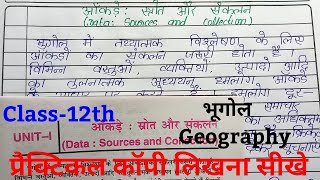 आंकड़े: स्रोत और संकलन
(Data: Sources and Collection)
भूगोल में तथ्यात्मक विश्लेषण के लिए
आंकड़ों का संकलन जरूरी होता है।
विभिन्न वस्तुओं, व्यक्तियों, उत्पादों आदि
का तुलनात्मक अध्ययन,
Class-12th
भूगोल
Geography
UNIT-I
आंकड़े : स्रोत और संकलन
(Data : Sources and Coll
प्रैक्टिकल कॉपी लिखना सीखे